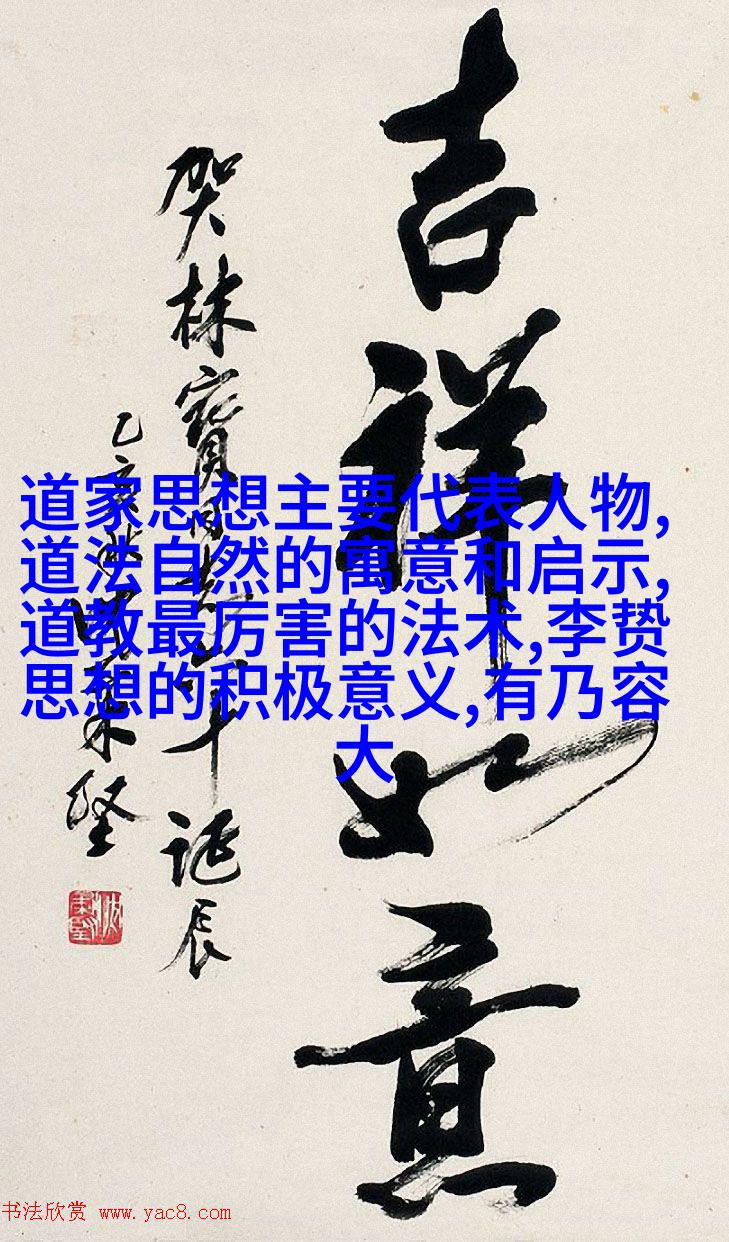 吉祥如意
贺林寶诞辰
乙亥
道家思想主要代表人物,
道法自然的寓意和启示,
道教最厉害的法术,李贽
思想的积极意义,有乃容
大
书法欣赏 www.yac8.com